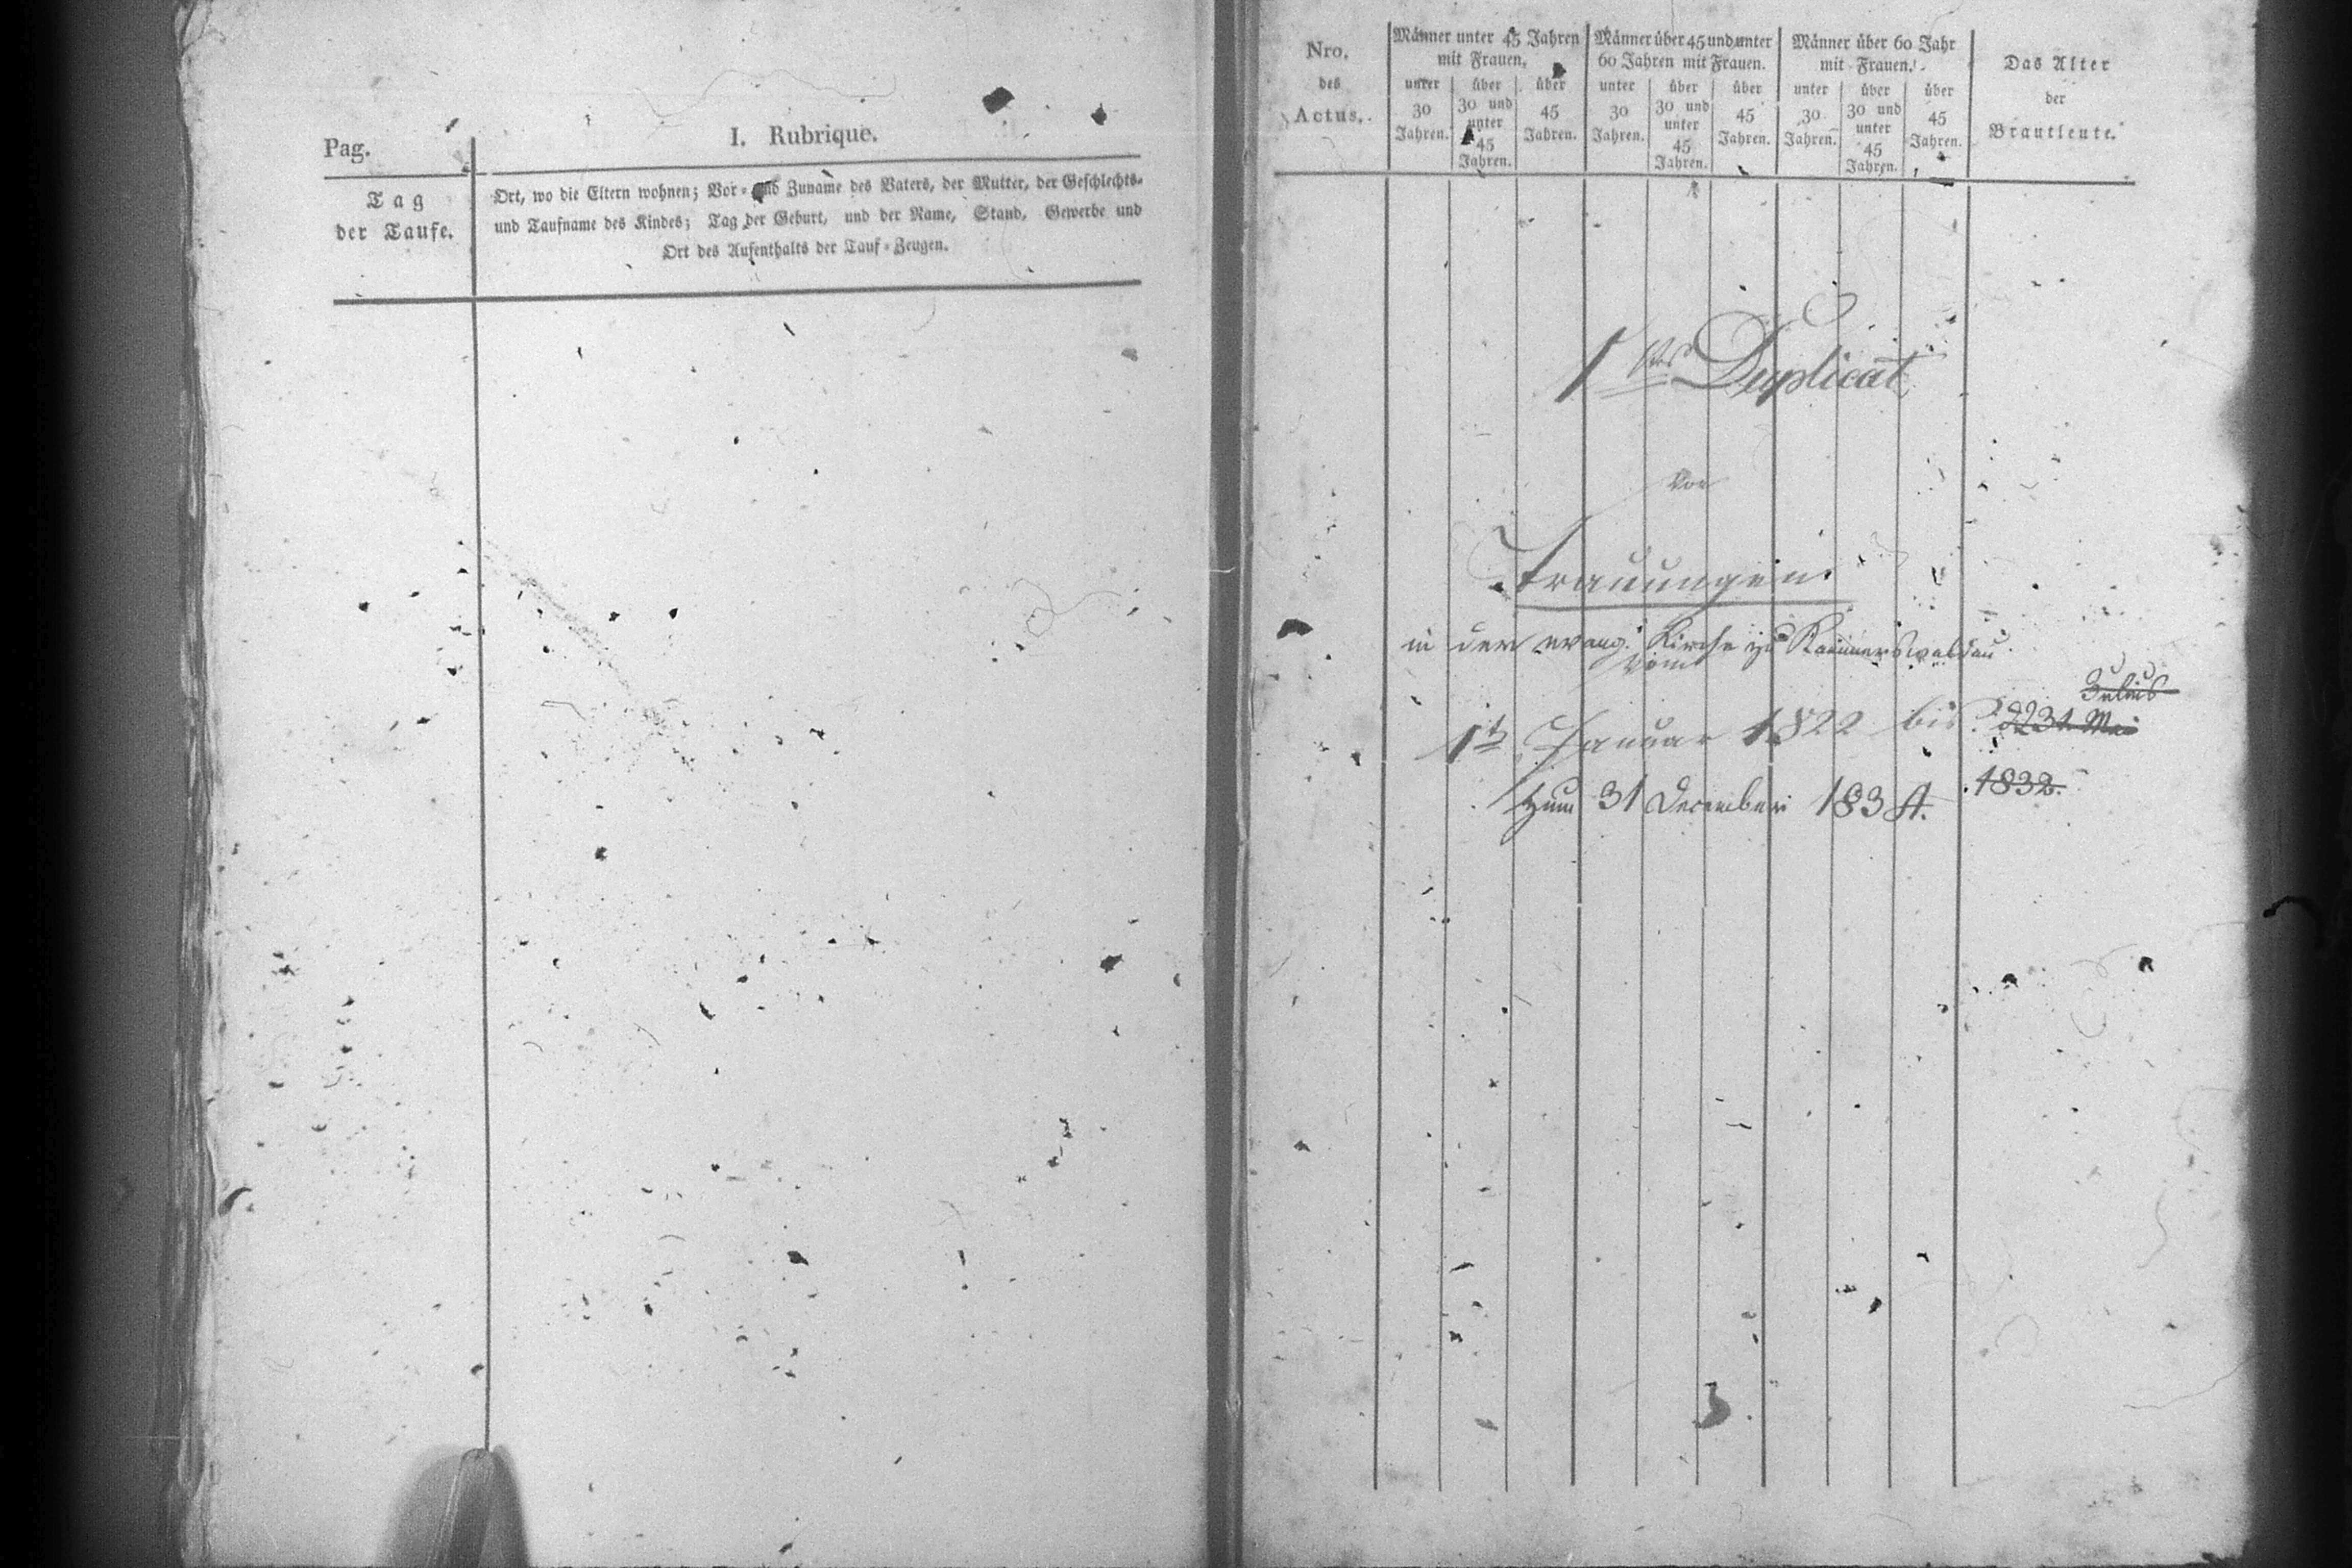 Pag.
I. Rubrique.
Tag
der Taufe.
Ort, wo die Eltern wohnen; Vor- und Zuname des Vaters, der Mutter, der Geschlechts-
und Taufname des Kindes; Tag der Geburt, und der Name, Stand, Gewerbe und
Ort des Aufenthalts der Tauf-Zeugen.
Nro.
des
Actus.
Männer unter 45 Jahren
mit Frauen.
unter
30
Jahren.
über
30 und
unter
45
Jahren.
über
45
Jahren.
Männer über 45 und unter
60 Jahren mit Frauen.
unter
30
Jahren.
über
30 und
unter
45
Jahren.
über
45
Jahren.
Männer über 60 Jahr
mit Frauen.
unter
30
Jahren.
über
30 und
unter
45
Jahren.
über
45
Jahren.
Das Alter
der
Brautleute.
1stes Duplicat
von
Trauungen
in der evang. Kirche zu Kammerswaldau
vom
Julius
1t Januar 1822 bis
1832.
zum 31 December 183